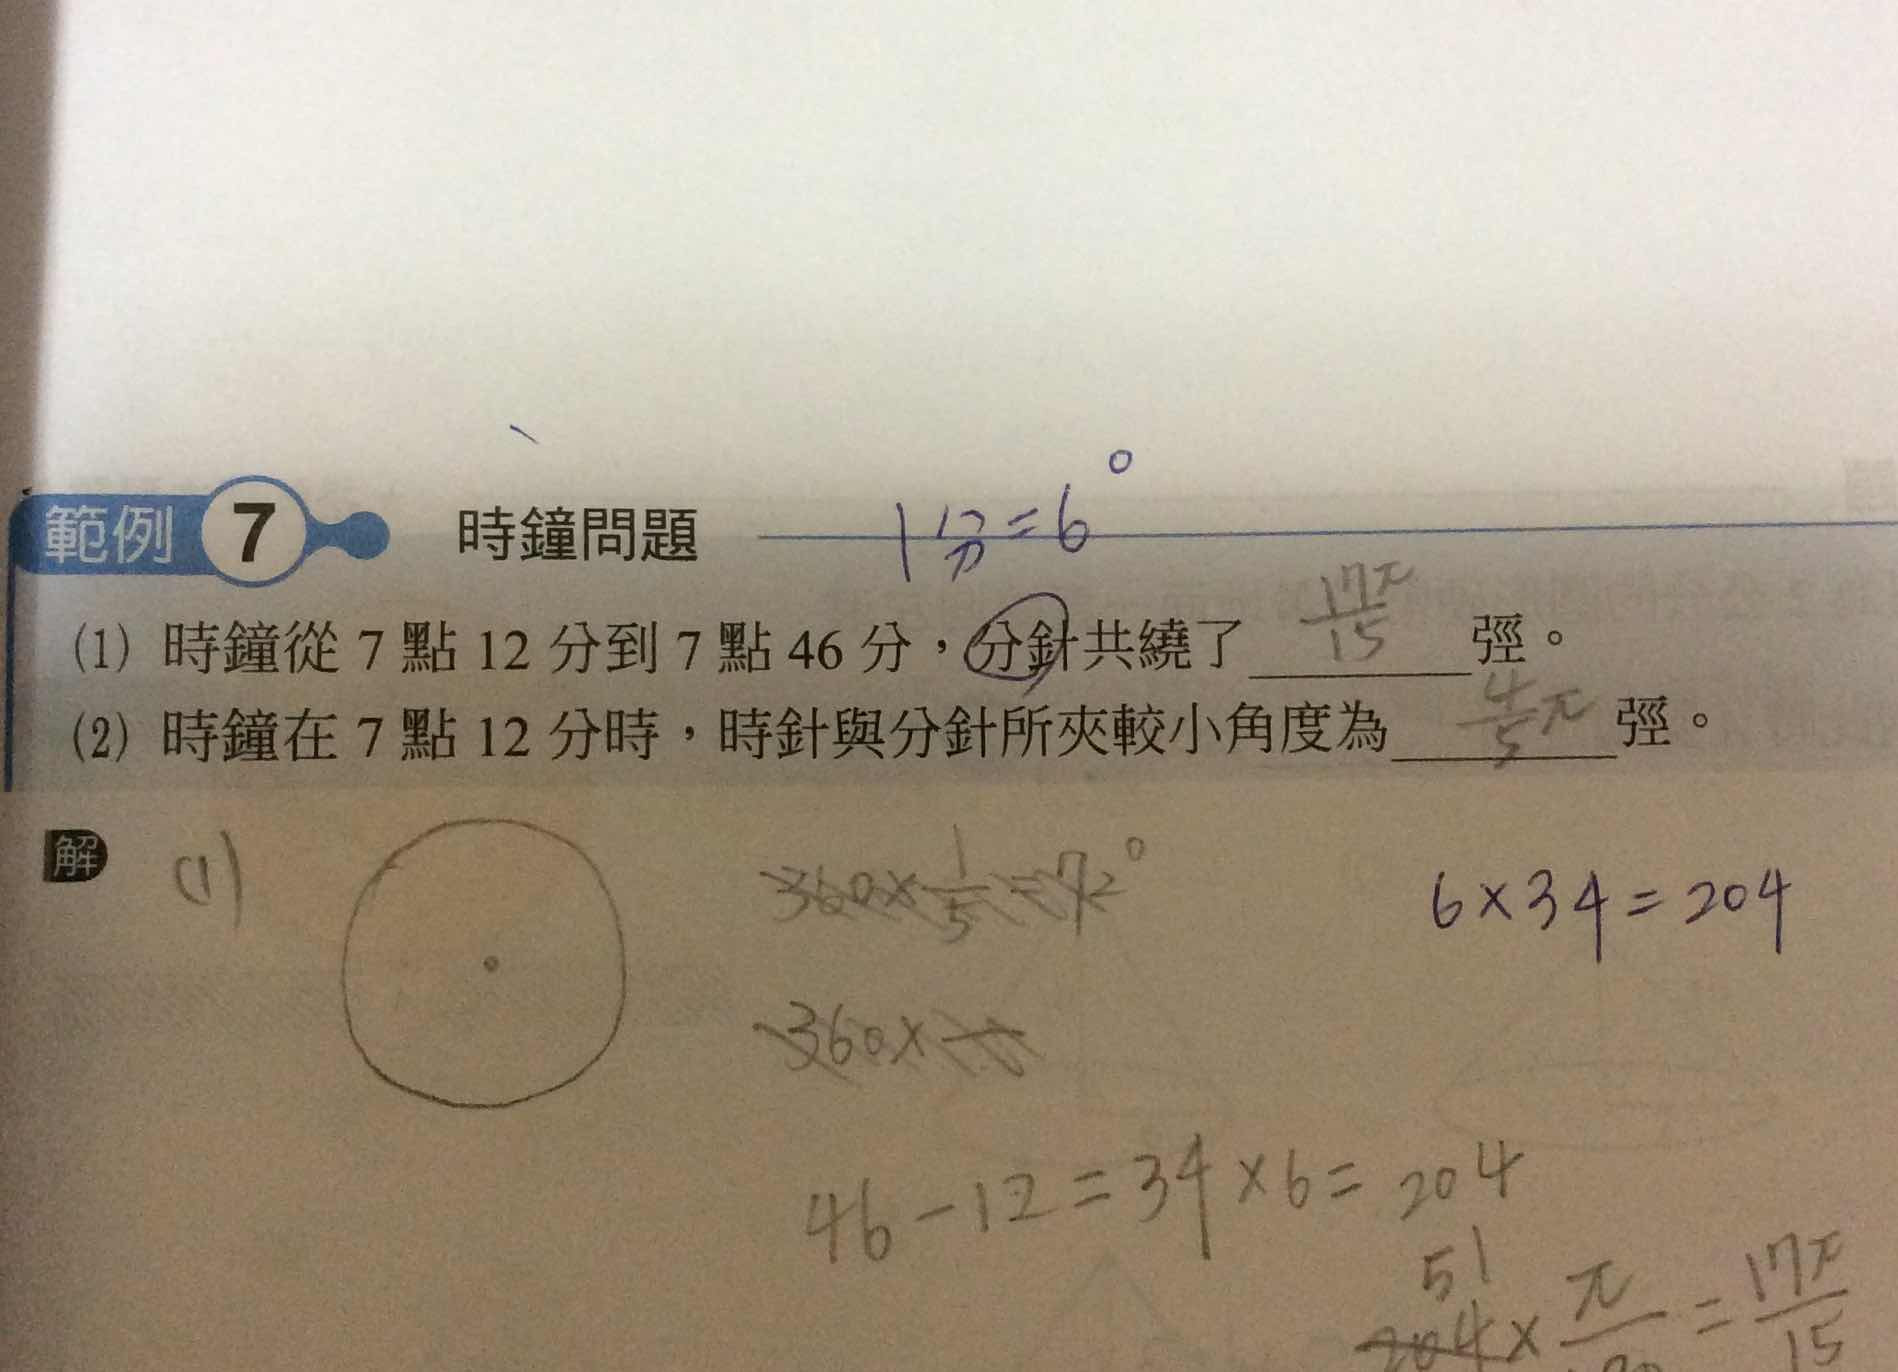 範例 7 時鐘問題 1分=6°
(1) 時鐘從 7 點 12 分到 7 點 46 分，分針共繞了 17π/15 弳。
(2) 時鐘在 7 點 12 分時，時針與分針所夾較小角度為 4/5 π 弳。
解 (1) 360×1/5=72° 6×34=204
360×
46-12=34×6=204
51
204×π/ = 17π/15